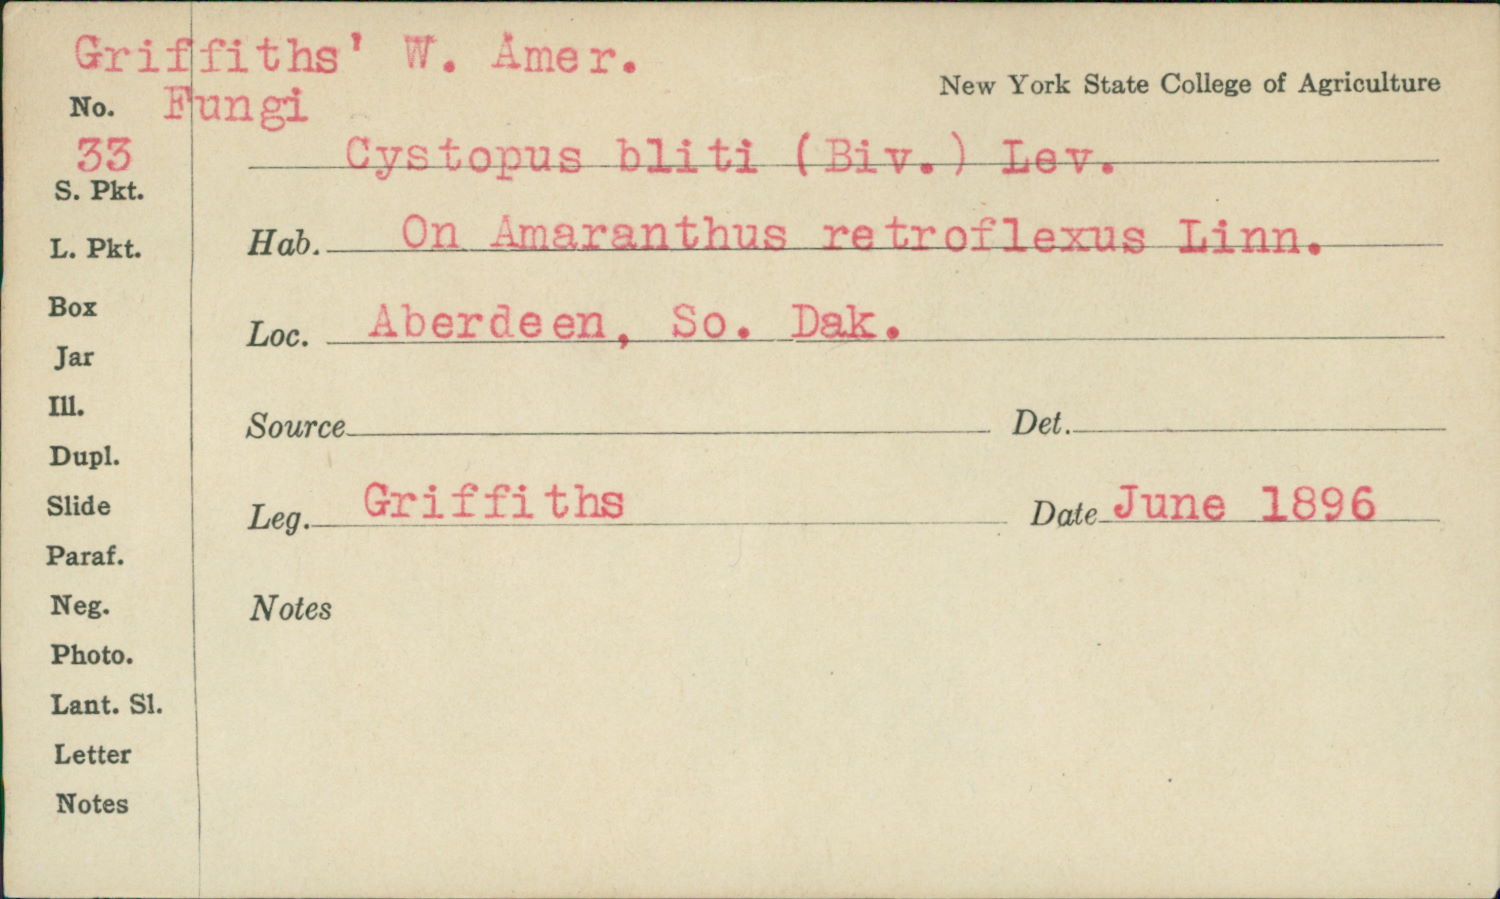 Griffiths' W. Amer.
New York State College of Agriculture
No. Fungi
33
Cystopus bliti (Biv.) Lev.
S. Pkt.
Hab. On Amaranthus retroflexus Linn.
L. Pkt.
Box
Loc. Aberdeen, So. Dak.
Jar
Ill.
Source Det.
Dupl.
Slide
Leg. Griffiths Date June 1896
Paraf.
Neg.
Notes
Photo.
Lant. Sl.
Letter
Notes